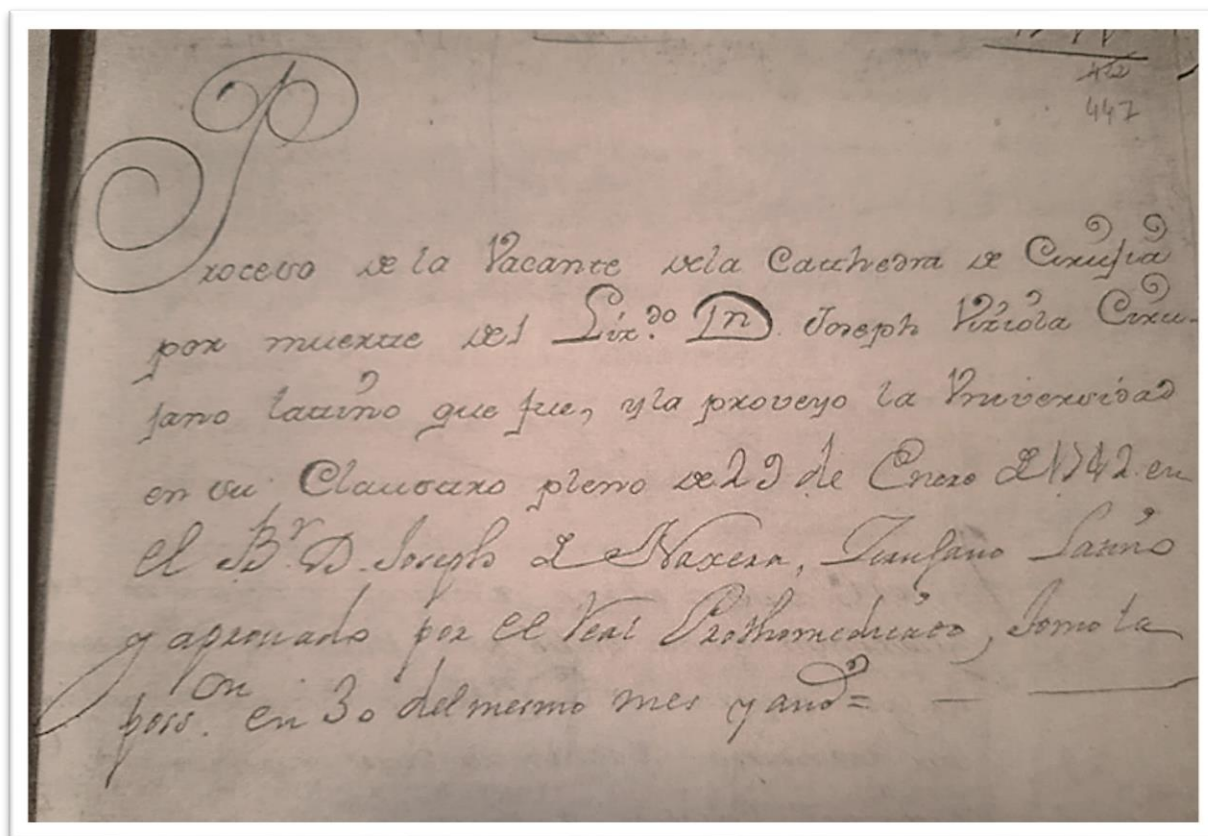 447
Proceso de la Vacante dela Cathedra de Cirujia
por muerte del Liz.do Dn. Joseph Ciru-
jano latino que fue, y la proveyo la Vniversidad
en su Claustro pleno de 29 de Enero de 1742 en
el Br. D. Joseph de Naxera, Cirujano Latino
y aprouado por el Real Prothomedicato, tomo la
poss.on en 30 del mesmo mes y año =